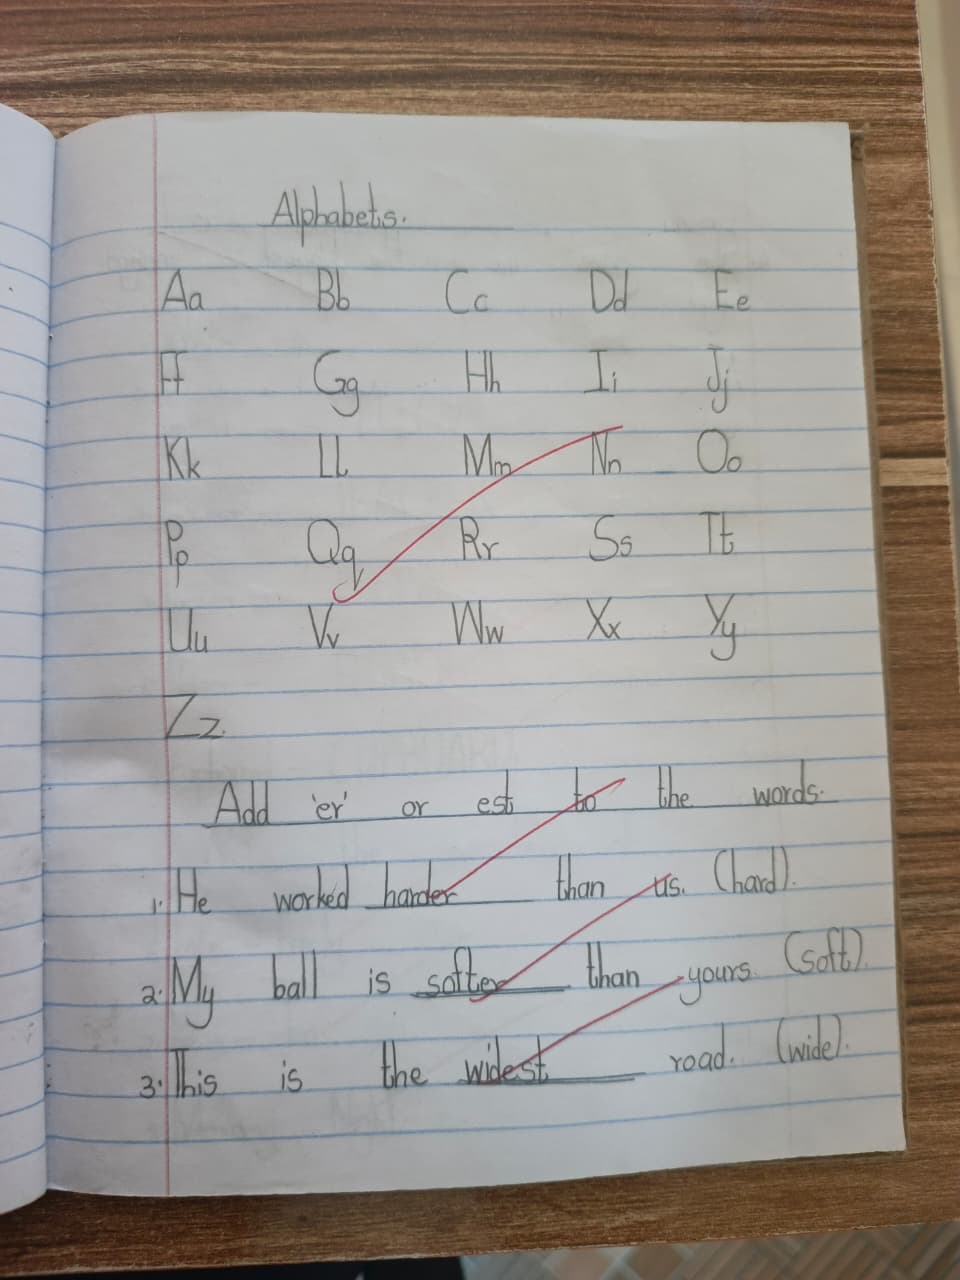 Alphabets.
Aa Bb Cc Dd Ee
Ff Gg Hh Ii Jj
Kk Ll Mm Nn Oo
Pp Qq Rr Ss Tt
Uu Vv Ww Xx Yy
Zz.
Add 'er' or est to the words.
1. He worked harder than us. (hard).
2. My ball is softer than yours. (soft).
3. This is the widest road. (wide).